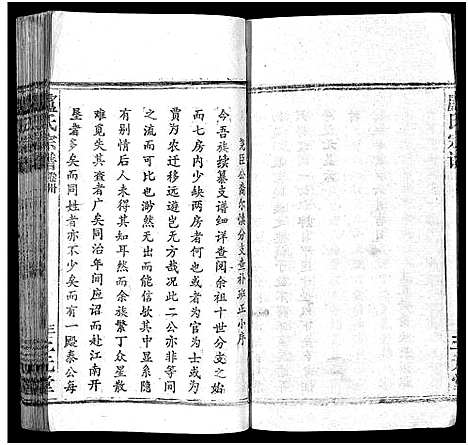 尧臣公裔尔慎分支查补班正小序
今吾族续纂支谱细详查阅余祖十世分支之始
而七房内少缺两房者何也或者为官为士或为
贾为农迁移远遁岂无方哉况此二公亦非等间
之流而可抄渺然无出而能信故其中显系隐
有别情后人未得其知耳然而余族繁丁众星散
难觅失其查者广矣同治年间应诏而赴江南开
垦者多矣而同姓者亦不少矣而有一殿泰公每
盧氏宗譜
三元堂
盧氏宗譜
三元堂